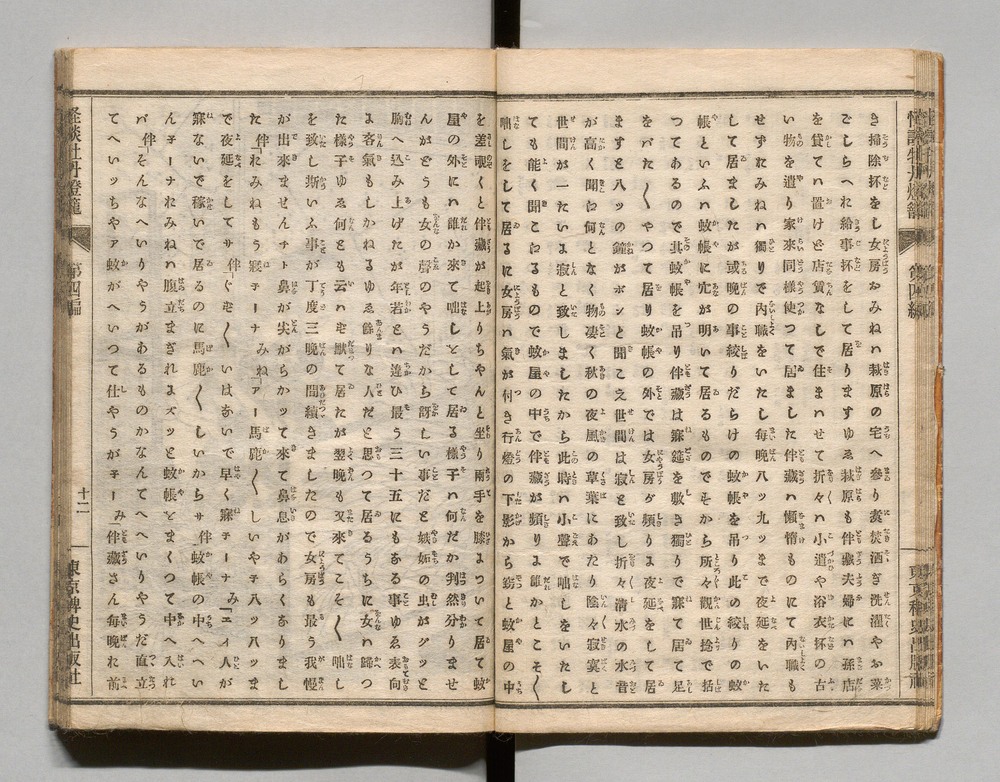 怪談牡丹燈籠 第四編 東京稗史出版社
き掃除抔をし女房おみねハ萩原の宅へ參り煑焚洒ぎ洗濯やお菜
ごしらへお給事抔をして居りますゆゑ萩原も伴藏夫婦にハ孫店
を貸てハ置けど店賃なしで住まハせて折々ハ小遣や浴衣抔の古
い物を遣り家來同樣使つて居ました伴藏ハ懶惰ものにて內職も
せずおみねハ獨りで內職をいたし每晩八ッ九ッまで夜延をいた
して居ましたが或晩の事絞りだらけの蚊帳を吊り此の絞りの蚊
帳といふハ蚊帳に穴が明いて居るものでそから所々觀世捻で括
つてあるので其蚊帳を吊り伴藏は寐蓙を敷き獨りで寐て居て足
をバた〱やつて居り蚊帳の外では女房が頻りよ夜延をして居
ますと八ッの鐘がボンと聞こえ世間は寂と致し折々淸水の水音
が高く聞に何となく物凄く秋の夜風の草葉にあたり陰々寂寞と
世間が一たいよ寂と致しましたから此時ハ小聲で咄しをいたし
ても能く聞こゆるもので蚊屋の中で伴藏が頻りよ誰かとこそ〱
咄しをして居るに女房ハ氣が付き行燈の下影から窈と蚊屋の中
を差覗くと伴藏が起上りちやんと坐り兩手を膝よついて居て蚊
屋の外にハ誰か來て咄しをして居る樣子ハ何だか判然分りませ
んがどうも女の聲のやうだから訝しい事だと嫉妬の虫がグッと
胸へ込み上げたが年若とハ違ひ最う三十五にもなる事ゆゑ表向
よ吝氣もしかねるゆゑ餘りな人だと思つて居るうちに女ハ歸つ
た樣子ゆゑ何とも云ハず默て居たが翌晩も又來てこそ〱咄し
を致し斯いふ事が丁度三晩の間續きましたので女房も最う我慢
が出來ませんチト鼻が尖がらかッて來て鼻息があらくなりまし
た伴「おみねもう寢チーナみね「アー馬鹿〱しいやチ八ッ八ッま
で夜延をしてサ伴「ぐず〱いはないで早く寐チーナみ「エイ人が
寐ないで稼いで居るのに馬鹿〱しいからサ伴「蚊帳の中へへい
んチーナおみねハ腹立まぎれよズッと蚊帳をまくつて中へ入れ
バ伴「そんなへいりやうがあるものかなんてへへいりやうだ直立
てへいッちやァ蚊がへいつて仕やうがチーみ「伴藏さん每晩お前
怪談牡丹燈籠 第四編 十二 東京稗史出版社